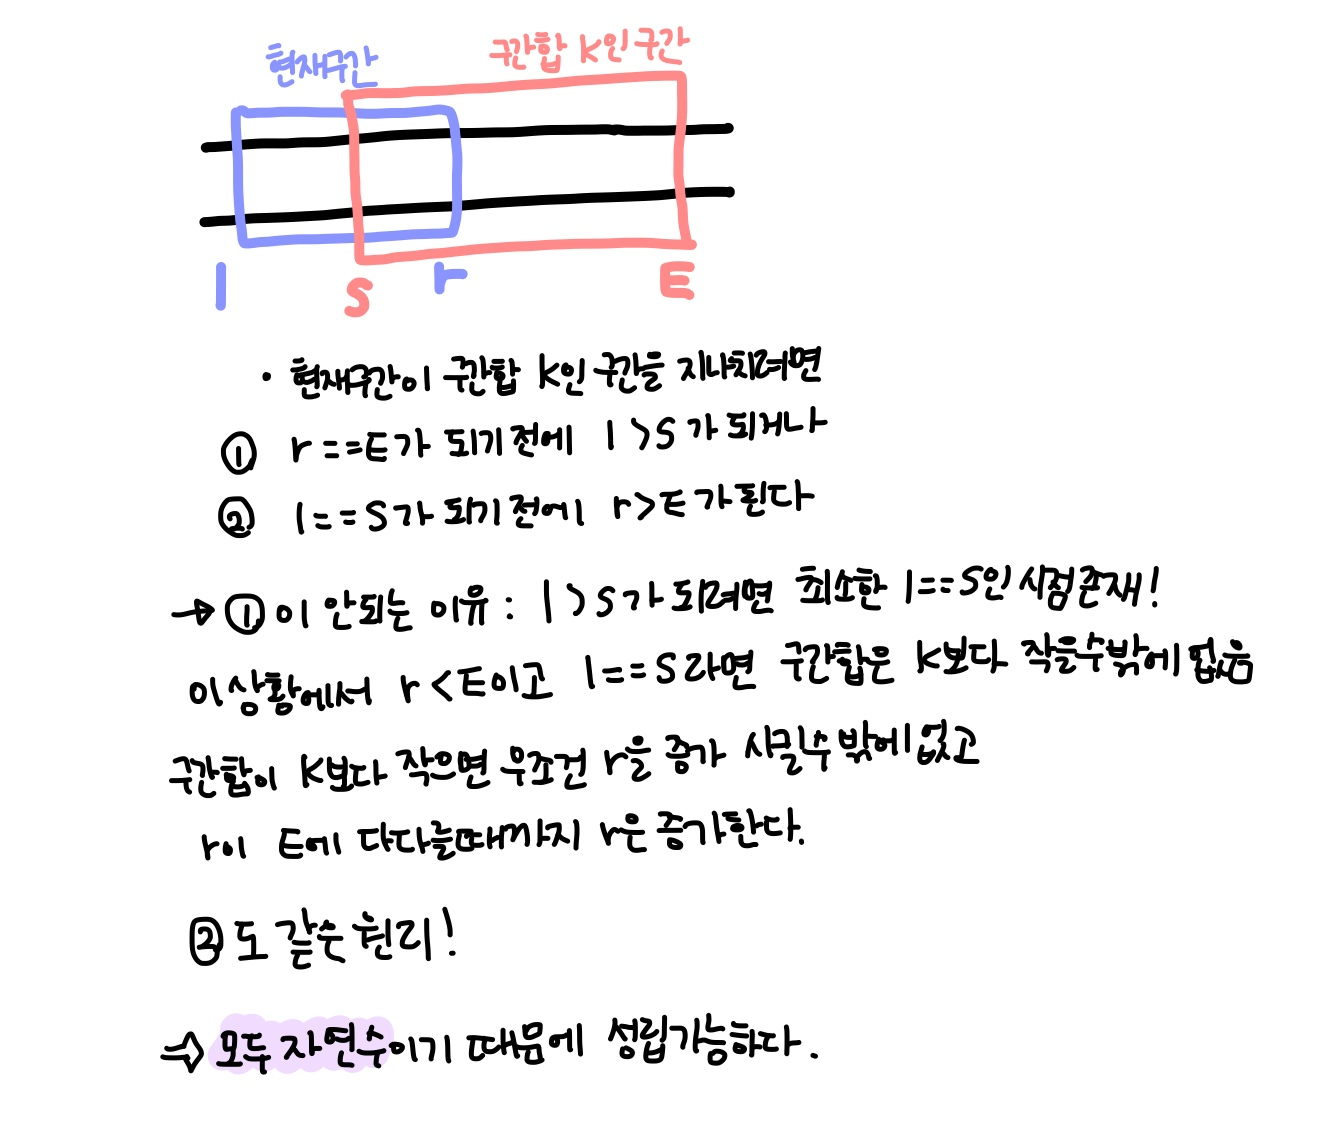 현재구간 구간합 K인 구간
l S r E
· 현재구간이 구간합 K인 구간을 지나치려면
① r==E가 되기 전에 l>S가 되거나
② l==S가 되기 전에 r>E가 된다
→ ①이 안되는 이유: l>S가 되려면 최소한 l==S인 시점 존재!
이 상황에서 r<E이고 l==S라면 구간합은 K보다 작을수밖에 없음
구간합이 K보다 작으면 무조건 r을 증가 시킬수 밖에 없고
r이 E에 다다를때까지 r은 증가한다.
②도 같은 원리!
⇒ 모두 자연수이기 때문에 성립가능하다.